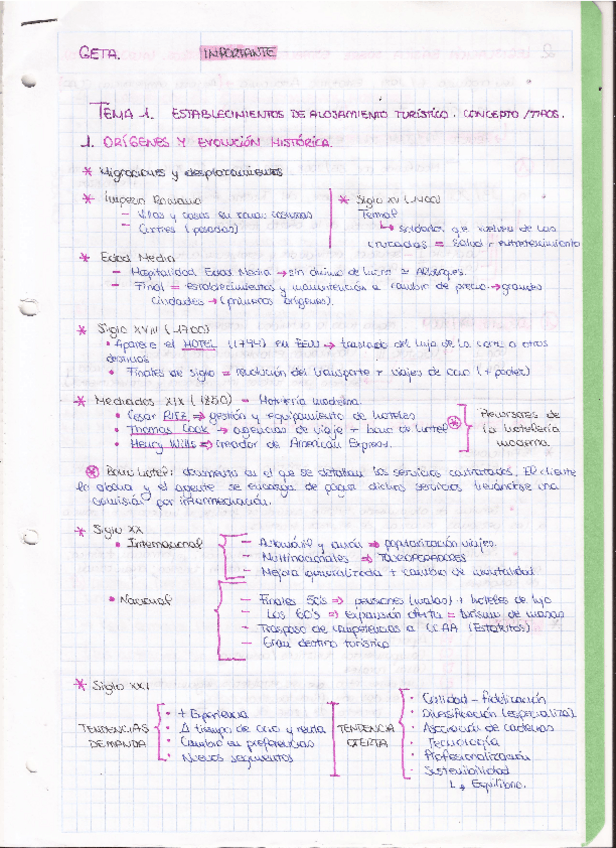 GETA. IMPORTANTE
TEMA 1. ESTABLECIMIENTOS DE ALOJAMIENTO TURÍSTICO. CONCEPTO/TIPOS.
1. ORÍGENES Y EVOLUCIÓN HISTÓRICA.
* Migraciones y desplazamientos
* Imperio Romano
- Villas y casas en zonas costeras
- (posadas)
* Siglo XV (1400)
Termal
↳ soldados que vuelven de las
cruzadas = Salud + entretenimiento
* Edad Media
- Hospitalidad Edad Media → sin ánimo de lucro = Albergues.
- Final = establecimientos y manutención a cambio de precio → grandes
ciudades → (primeros orígenes).
* Siglo XVIII (1700)
• Aparece el HOTEL (1794) en EEUU → traslado del lujo de la corte a otros
destinos
• Finales de siglo = revolución del transporte + viajes de ocio (+ poder)
* Mediados XIX (1850) - Hotelería moderna.
• Cesar RITZ ⇒ gestión y equipamiento de hoteles
• Thomas Cook ⇒ agencias de viaje + bono de hotel *
• Henry Wells ⇒ Creador de American Express.
Precursores de
la hotelería
moderna.
* Bono Hotel: documento en el que se detallan los servicios contratados. El cliente
lo abona y el agente se encarga de pagar dichos servicios llevándose una
comisión por intermediación.
* Siglo XX
• Internacional
- Automóvil y avión ⇒ popularización viajes.
- Multinacionales ⇒ TOUROPERADORES
- Mejora generalizada + cambio de mentalidad
• Nacional
- Finales 50's ⇒ pensiones (malas) + hoteles de lujo
- Los 60's ⇒ expansión oferta = turismo de masas
- Traspaso de competencias a CCAA (Estatutos)
- Gran destino turístico
* Siglo XXI
TENDENCIAS
DEMANDA
• + Experiencia
• Δ tiempo de ocio y renta
• Cambio en preferencias
• Nuevos segmentos
TENDENCIA
OFERTA
• Calidad - fidelización
• Diversificación (especializa).
• Asociación de cadenas
• Tecnología
• Profesionalización
• Sostenibilidad
↳ Equilibrio.